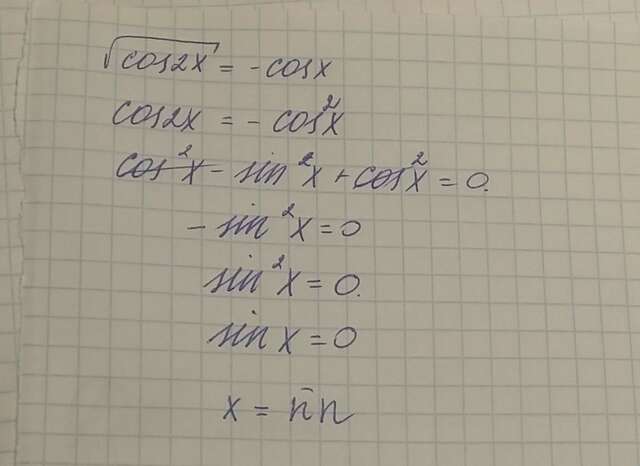 √cos2x = -cosx
cos2x = - cos²x
cos²x - sin²x + cos²x = 0.
- sin²x = 0
sin²x = 0.
sin x = 0
x = πn